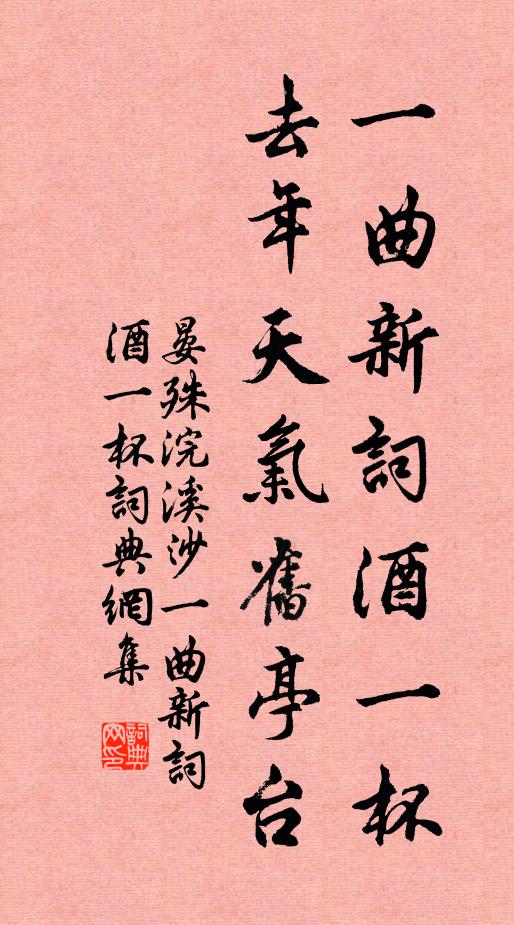 一曲新詞酒一杯
去年天氣舊亭台
晏殊浣溪沙一曲新詞
酒一杯詞典網集
詞典
网印